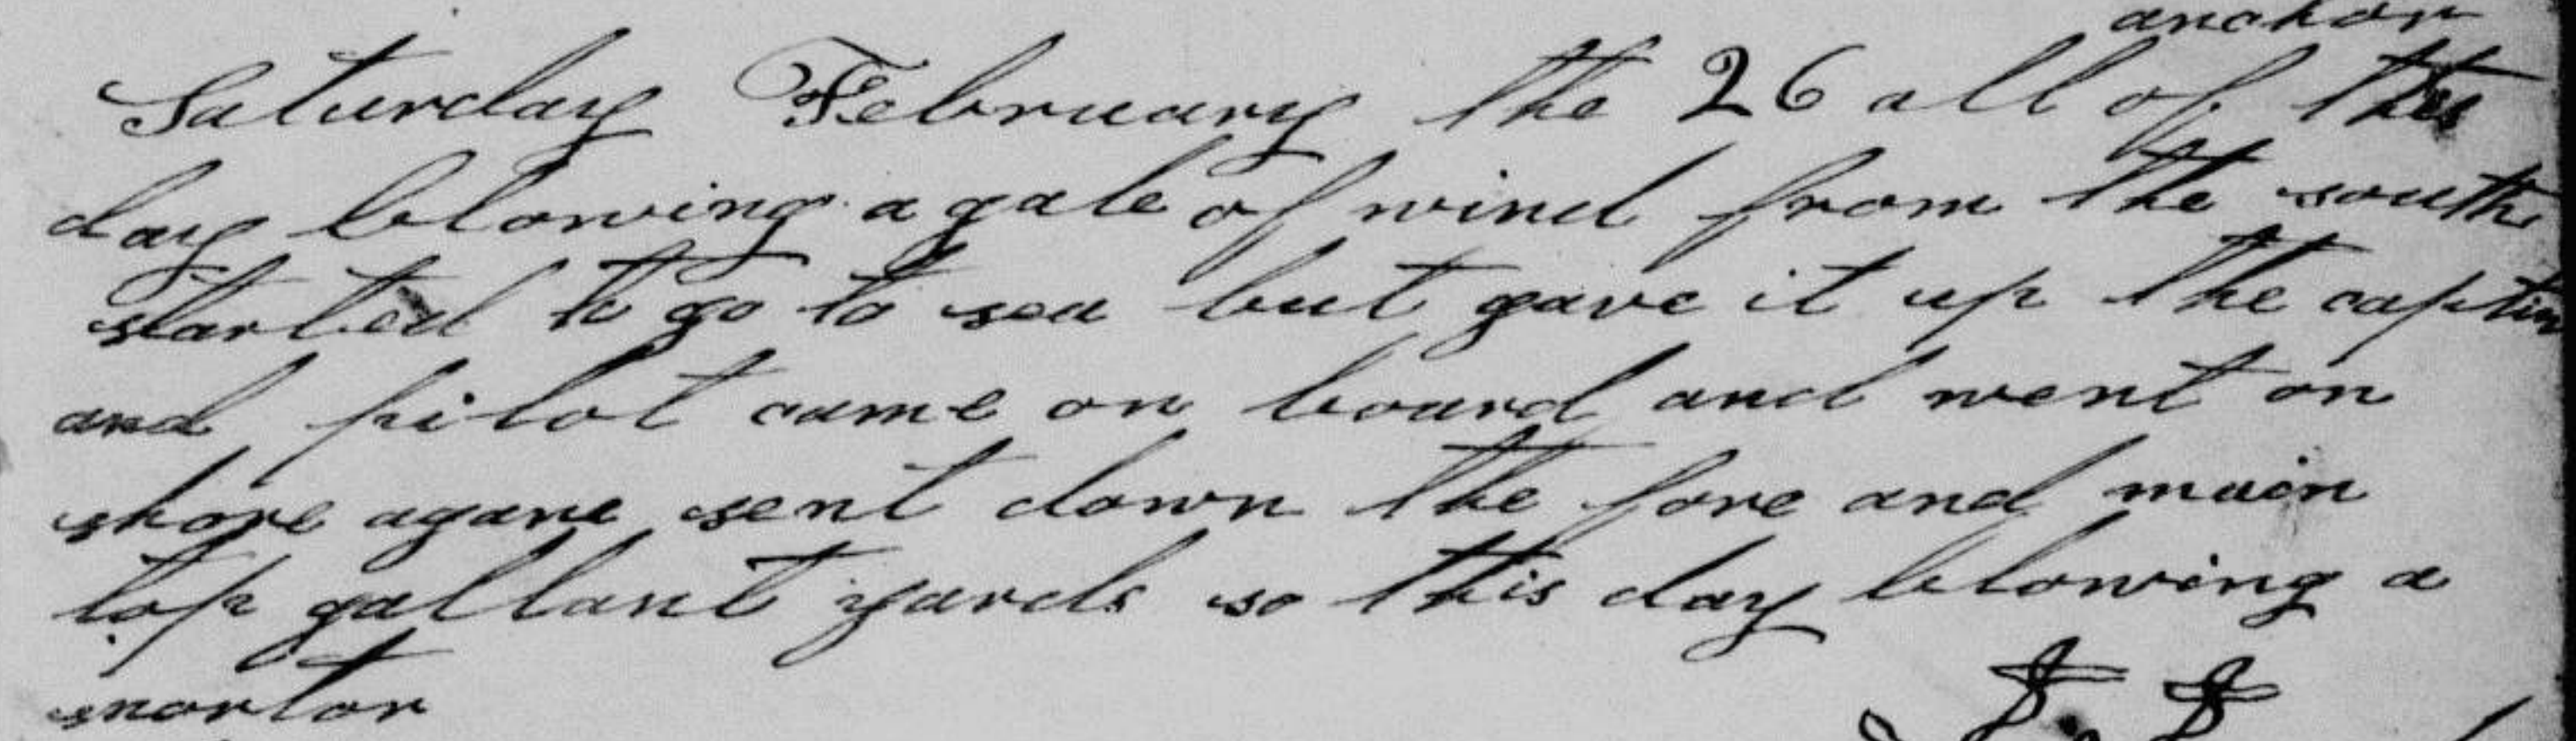 anchor
Saturday February the 26 all of this
day blowing a gale of wind from the south
started to go to sea but gave it up the captin
and pilot came on board and went on
shore agane sent down the fore and main
top gallant yards so this day blowing a
snortor